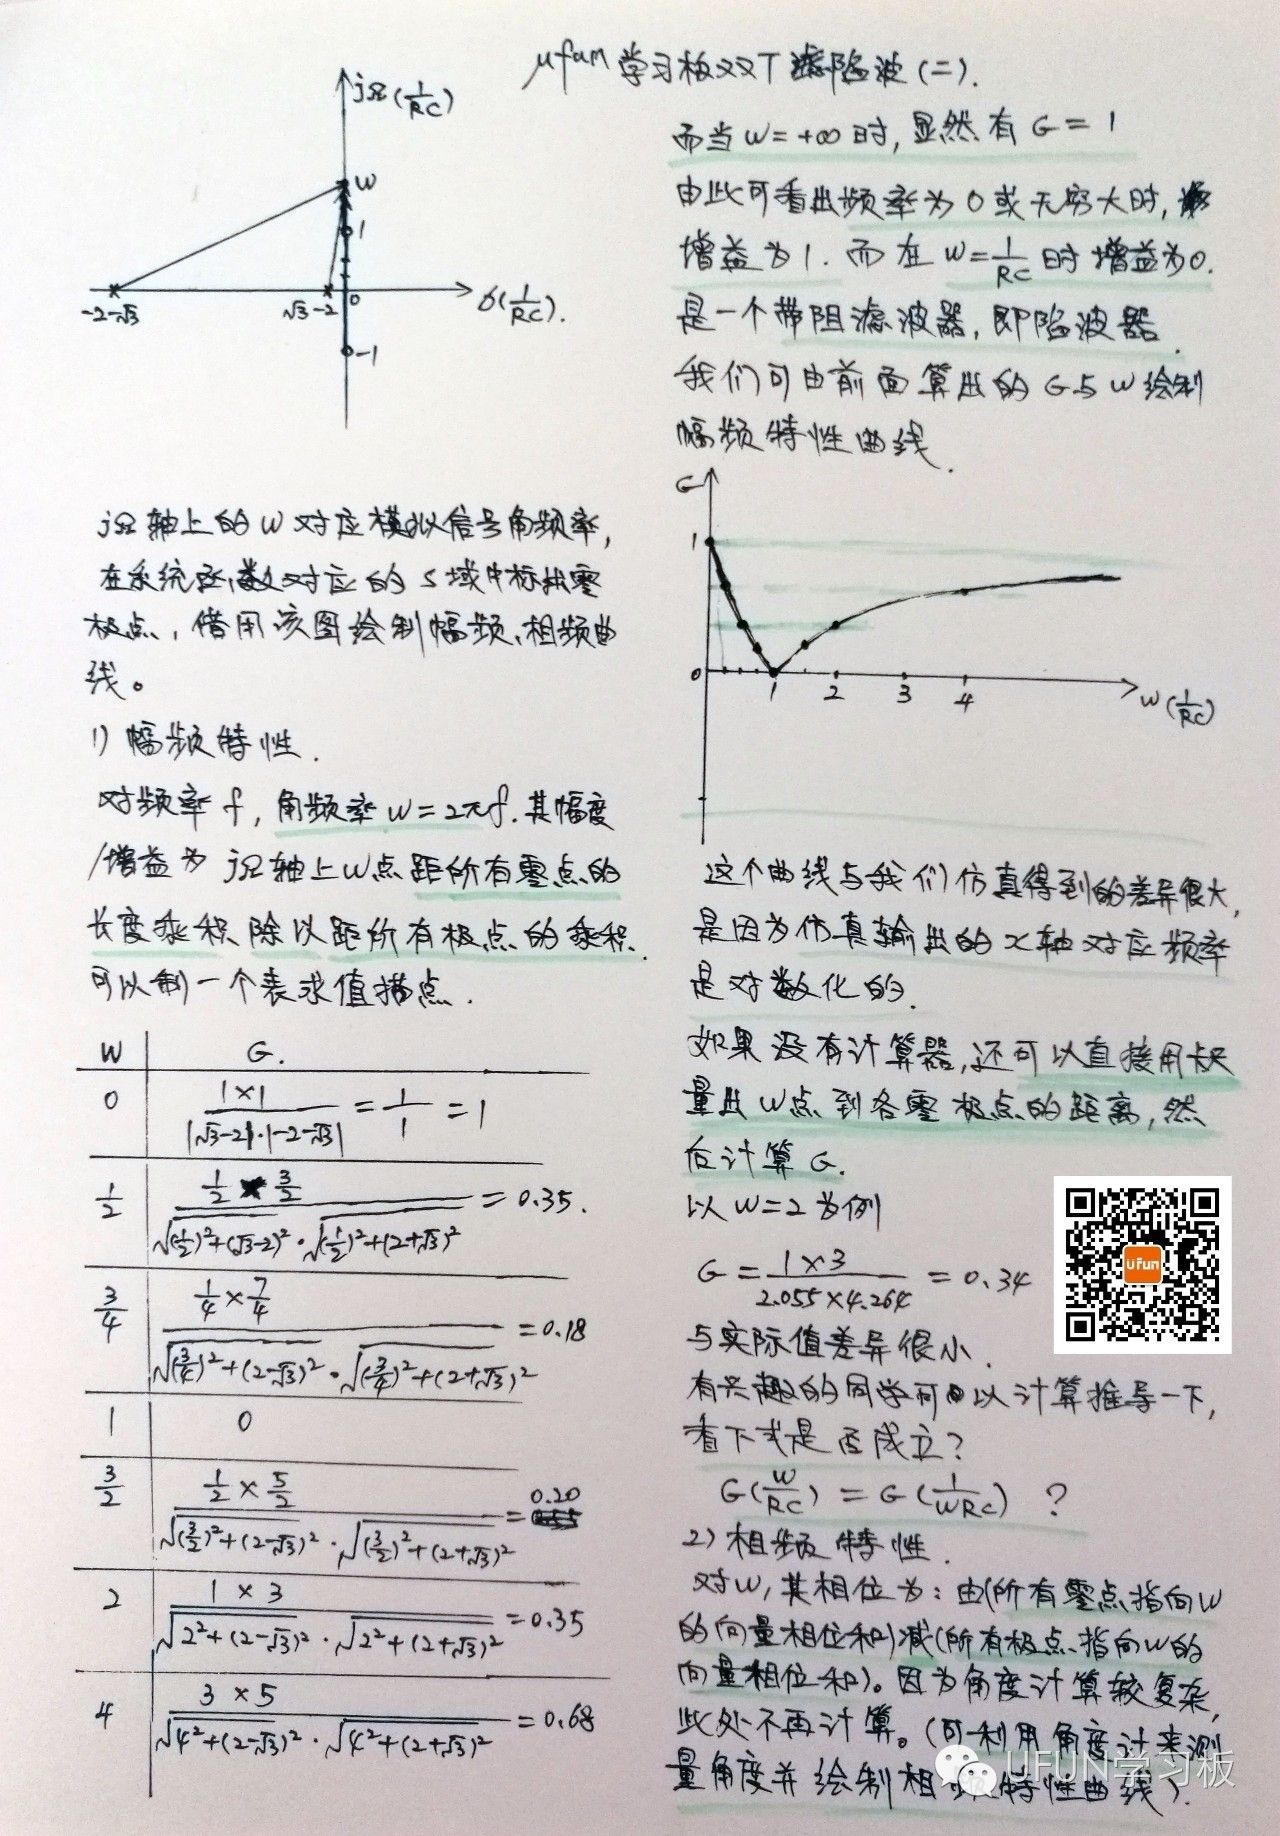 ufun 学习板双T 陷波(二).
jΩ(1/RC)
W
1
-2-√3
√3-2
0
σ(1/RC).
-1
jΩ轴上的W对应模拟信号角频率,
在系统函数对应的S域中标出零
极点,借用该图绘制幅频、相频曲
线。
1) 幅频特性.
对频率f,角频率W=2πf.其幅度
/增益为jΩ轴上W点距所有零点的
长度乘积除以距所有极点的乘积.
可以制一个表求值描点.
W G.
0 (1×1)/(|√3-2|·|-2-√3|) = 1/1 = 1
1/2 (1/2 × 3/2)/(√((1/2)²+(√3-2)²)·√((1/2)²+(2+√3)²)) = 0.35.
3/4 (1/4×7/4)/(√((3/4)²+(2-√3)²)·√((3/4)²+(2+√3)²)) = 0.18
1 0
3/2 (1/2×5/2)/(√((3/2)²+(2-√3)²)·√((3/2)²+(2+√3)²)) = 0.20
2 (1×3)/(√(2²+(2-√3)²)·√(2²+(2+√3)²)) = 0.35
4 (3×5)/(√(4²+(2-√3)²)·√(4²+(2+√3)²)) = 0.68
而当W=+∞时,显然有G=1
由此可看出频率为0或无穷大时,
增益为1.而在W=1/RC时增益为0.
是一个带阻滤波器,即陷波器.
我们可由前面算出的G与W绘制
幅频特性曲线.
G
1
0
1 2 3 4
W(1/RC)
这个曲线与我们仿真得到的差异很大,
是因为仿真输出的x轴对应频率
是对数化的.
如果没有计算器,还可以直接用尺
量出W点到各零极点的距离,然
后计算G.
以W=2为例
G=(1×3)/(2.055×4.264) = 0.34
与实际值差异很小.
有兴趣的同学可以计算推导一下,
看下式是否成立?
G(W/RC) = G(1/WRC) ?
2) 相频特性.
对W,其相位为:由(所有零点指向W
的向量相位和)减(所有极点指向W的
向量相位和)。因为角度计算较复杂,
此处不再计算。(可利用角度计来测
量角度并绘制相频特性曲线).
ufun
UFUN学习板